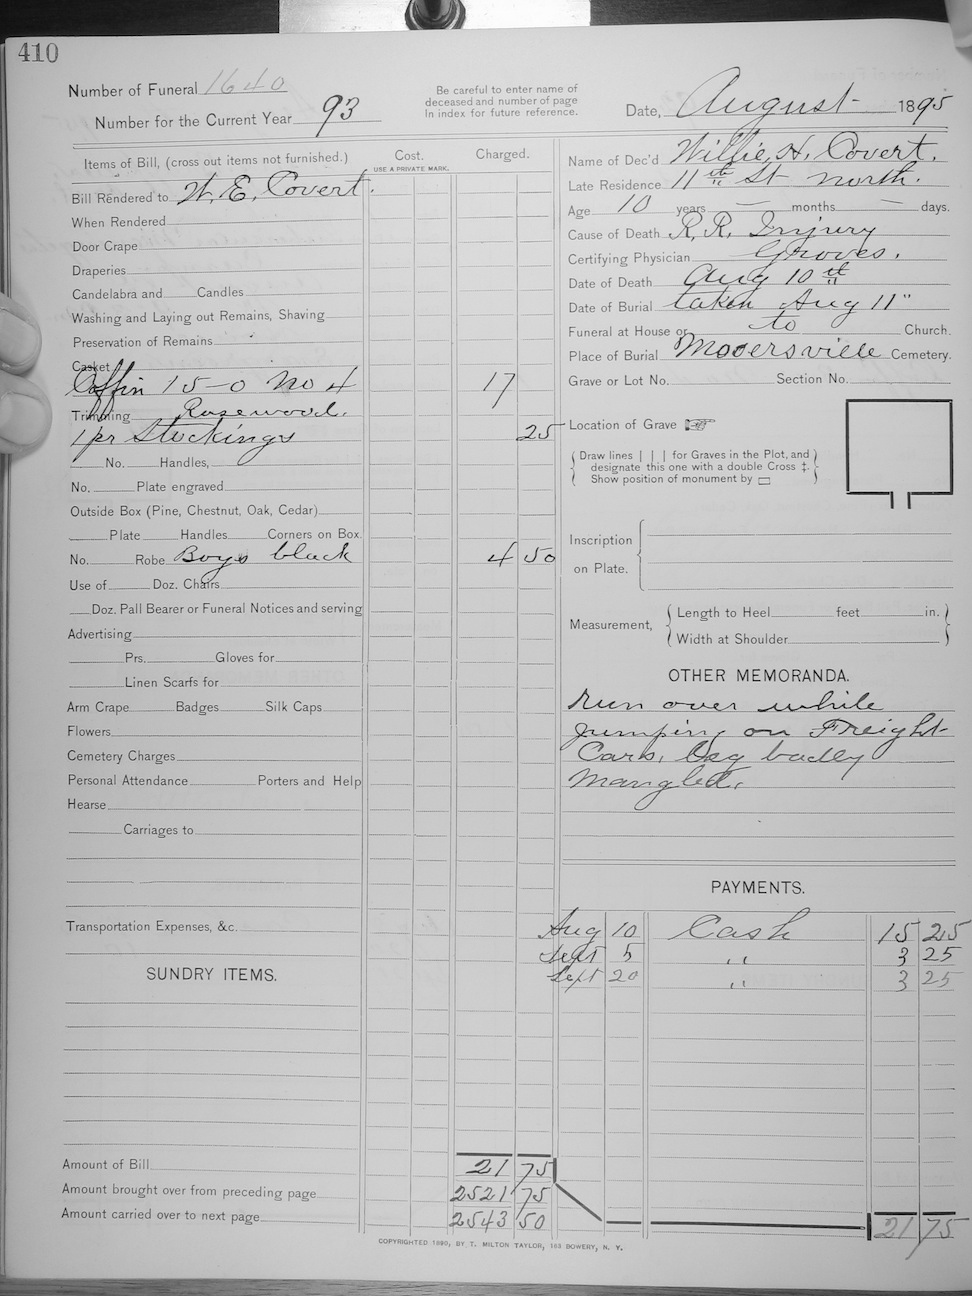 410
Number of Funeral 1640
Number for the Current Year 93
Be careful to enter name of
deceased and number of page
In index for future reference.
Date, August 1895
Items of Bill, (cross out items not furnished.)
Cost.
USE A PRIVATE MARK.
Charged.
Bill Rendered to W. E. Covert.
When Rendered
Door Crape
Draperies
Candelabra and Candles
Washing and Laying out Remains, Shaving
Preservation of Remains
Casket
Coffin 15-0 No 4 17
Trimming Rosewood.
1 pr Stockings 25
No. Handles,
No. Plate engraved
Outside Box (Pine, Chestnut, Oak, Cedar)
Plate Handles Corners on Box.
No. Robe Boys black 4 50
Use of Doz. Chairs
Doz. Pall Bearer or Funeral Notices and serving
Advertising
Prs. Gloves for
Linen Scarfs for
Arm Crape Badges Silk Caps
Flowers
Cemetery Charges
Personal Attendance Porters and Help
Hearse
Carriages to
Transportation Expenses, &c.
SUNDRY ITEMS.
Amount of Bill 21 75
Amount brought over from preceding page 2521 75
Amount carried over to next page 2543 50
Name of Dec'd Willie, H. Covert.
Late Residence 11th St North.
Age 10 years — months — days.
Cause of Death R. R. Injury
Certifying Physician Groves.
Date of Death Aug 10th
Date of Burial taken Aug 11"
Funeral at House or to Church.
Place of Burial Mooersville Cemetery.
Grave or Lot No. Section No.
Location of Grave ☞
Draw lines | | | for Graves in the Plot, and
designate this one with a double Cross ‡.
Show position of monument by ▭
Inscription
on Plate.
Measurement,
Length to Heel feet in.
Width at Shoulder
OTHER MEMORANDA.
Run over while
jumping on Freight
Cars, Leg badly
Mangled.
PAYMENTS.
Aug 10 Cash 15 25
Sept 5 " 3 25
Sept 20 " 3 25
21 75
COPYRIGHTED 1890, BY T. MILTON TAYLOR, 183 BOWERY, N. Y.